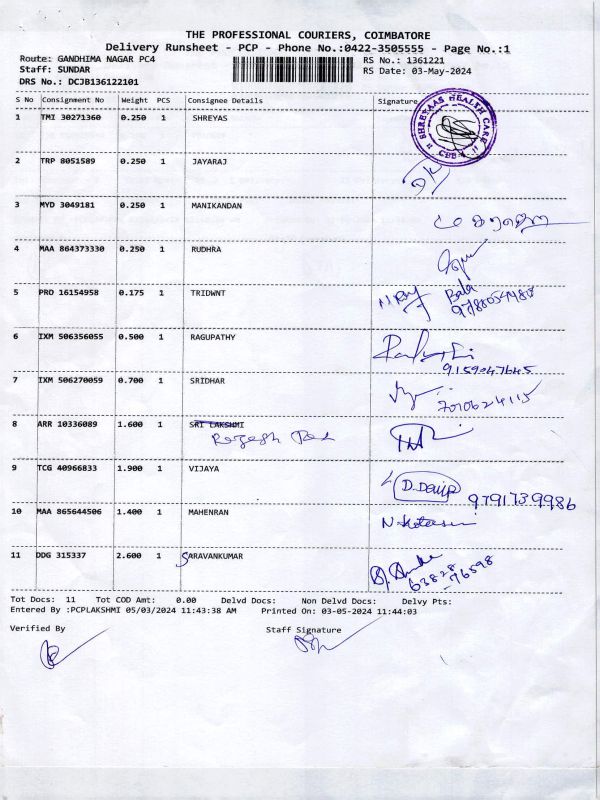 THE PROFESSIONAL COURIERS, COIMBATORE
Delivery Runsheet - PCP - Phone No.:0422-3505555 - Page No.:1
Route: GANDHIMA NAGAR PC4 RS No.: 1361221
Staff: SUNDAR RS Date: 03-May-2024
DRS No.: DCJB136122101
S No Consignment No Weight PCS Consignee Details Signature
SHREYAAS HEALTH CARE
CBE
1 TMI 30271360 0.250 1 SHREYAS
2 TRP 8051589 0.250 1 JAYARAJ
3 MYD 3049181 0.250 1 MANIKANDAN
4 MAA 864373330 0.250 1 RUDHRA
5 PRO 16154958 0.175 1 TRIDWNT Bala
6 IXM 506356055 0.500 1 RAGUPATHY
9159047645
7 IXM 506270059 0.700 1 SRIDHAR
7010624115
8 ARR 10336089 1.600 1 SRI LAKSHMI
9 TCG 40966833 1.900 1 VIJAYA
9791739986
10 MAA 865644506 1.400 1 MAHENRAN
11 DDG 315337 2.600 1 SARAVANKUMAR
63828
76598
Tot Docs: 11 Tot COD Amt: 0.00 Delvd Docs: Non Delvd Docs: Delvy Pts:
Entered By :PCPLAKSHMI 05/03/2024 11:43:38 AM Printed On: 03-05-2024 11:44:03
Verified By Staff Signature